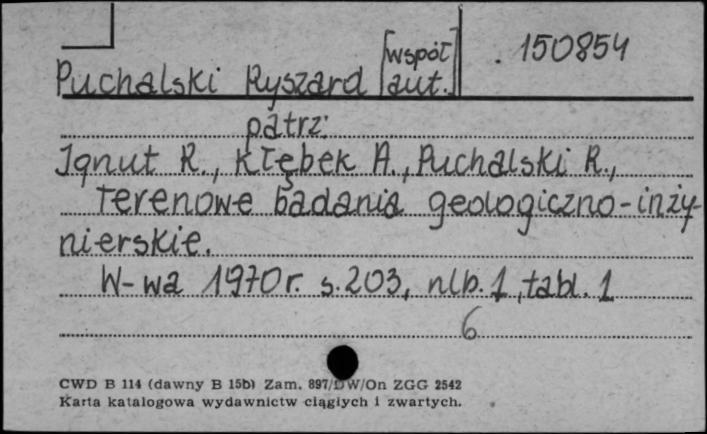 Puchalski Ryszard [współ aut.] 150854
patrz:
Ignut R., Kłębek A., Puchalski R.,
Terenowe badania geologiczno-inży-
nierskie.
W-wa 1970r. s.203, nlb.1, tabl. 1
6
CWD B 114 (dawny B 15b) Zam. 897/DW/On ZGG 2542
Karta katalogowa wydawnictw ciągłych i zwartych.